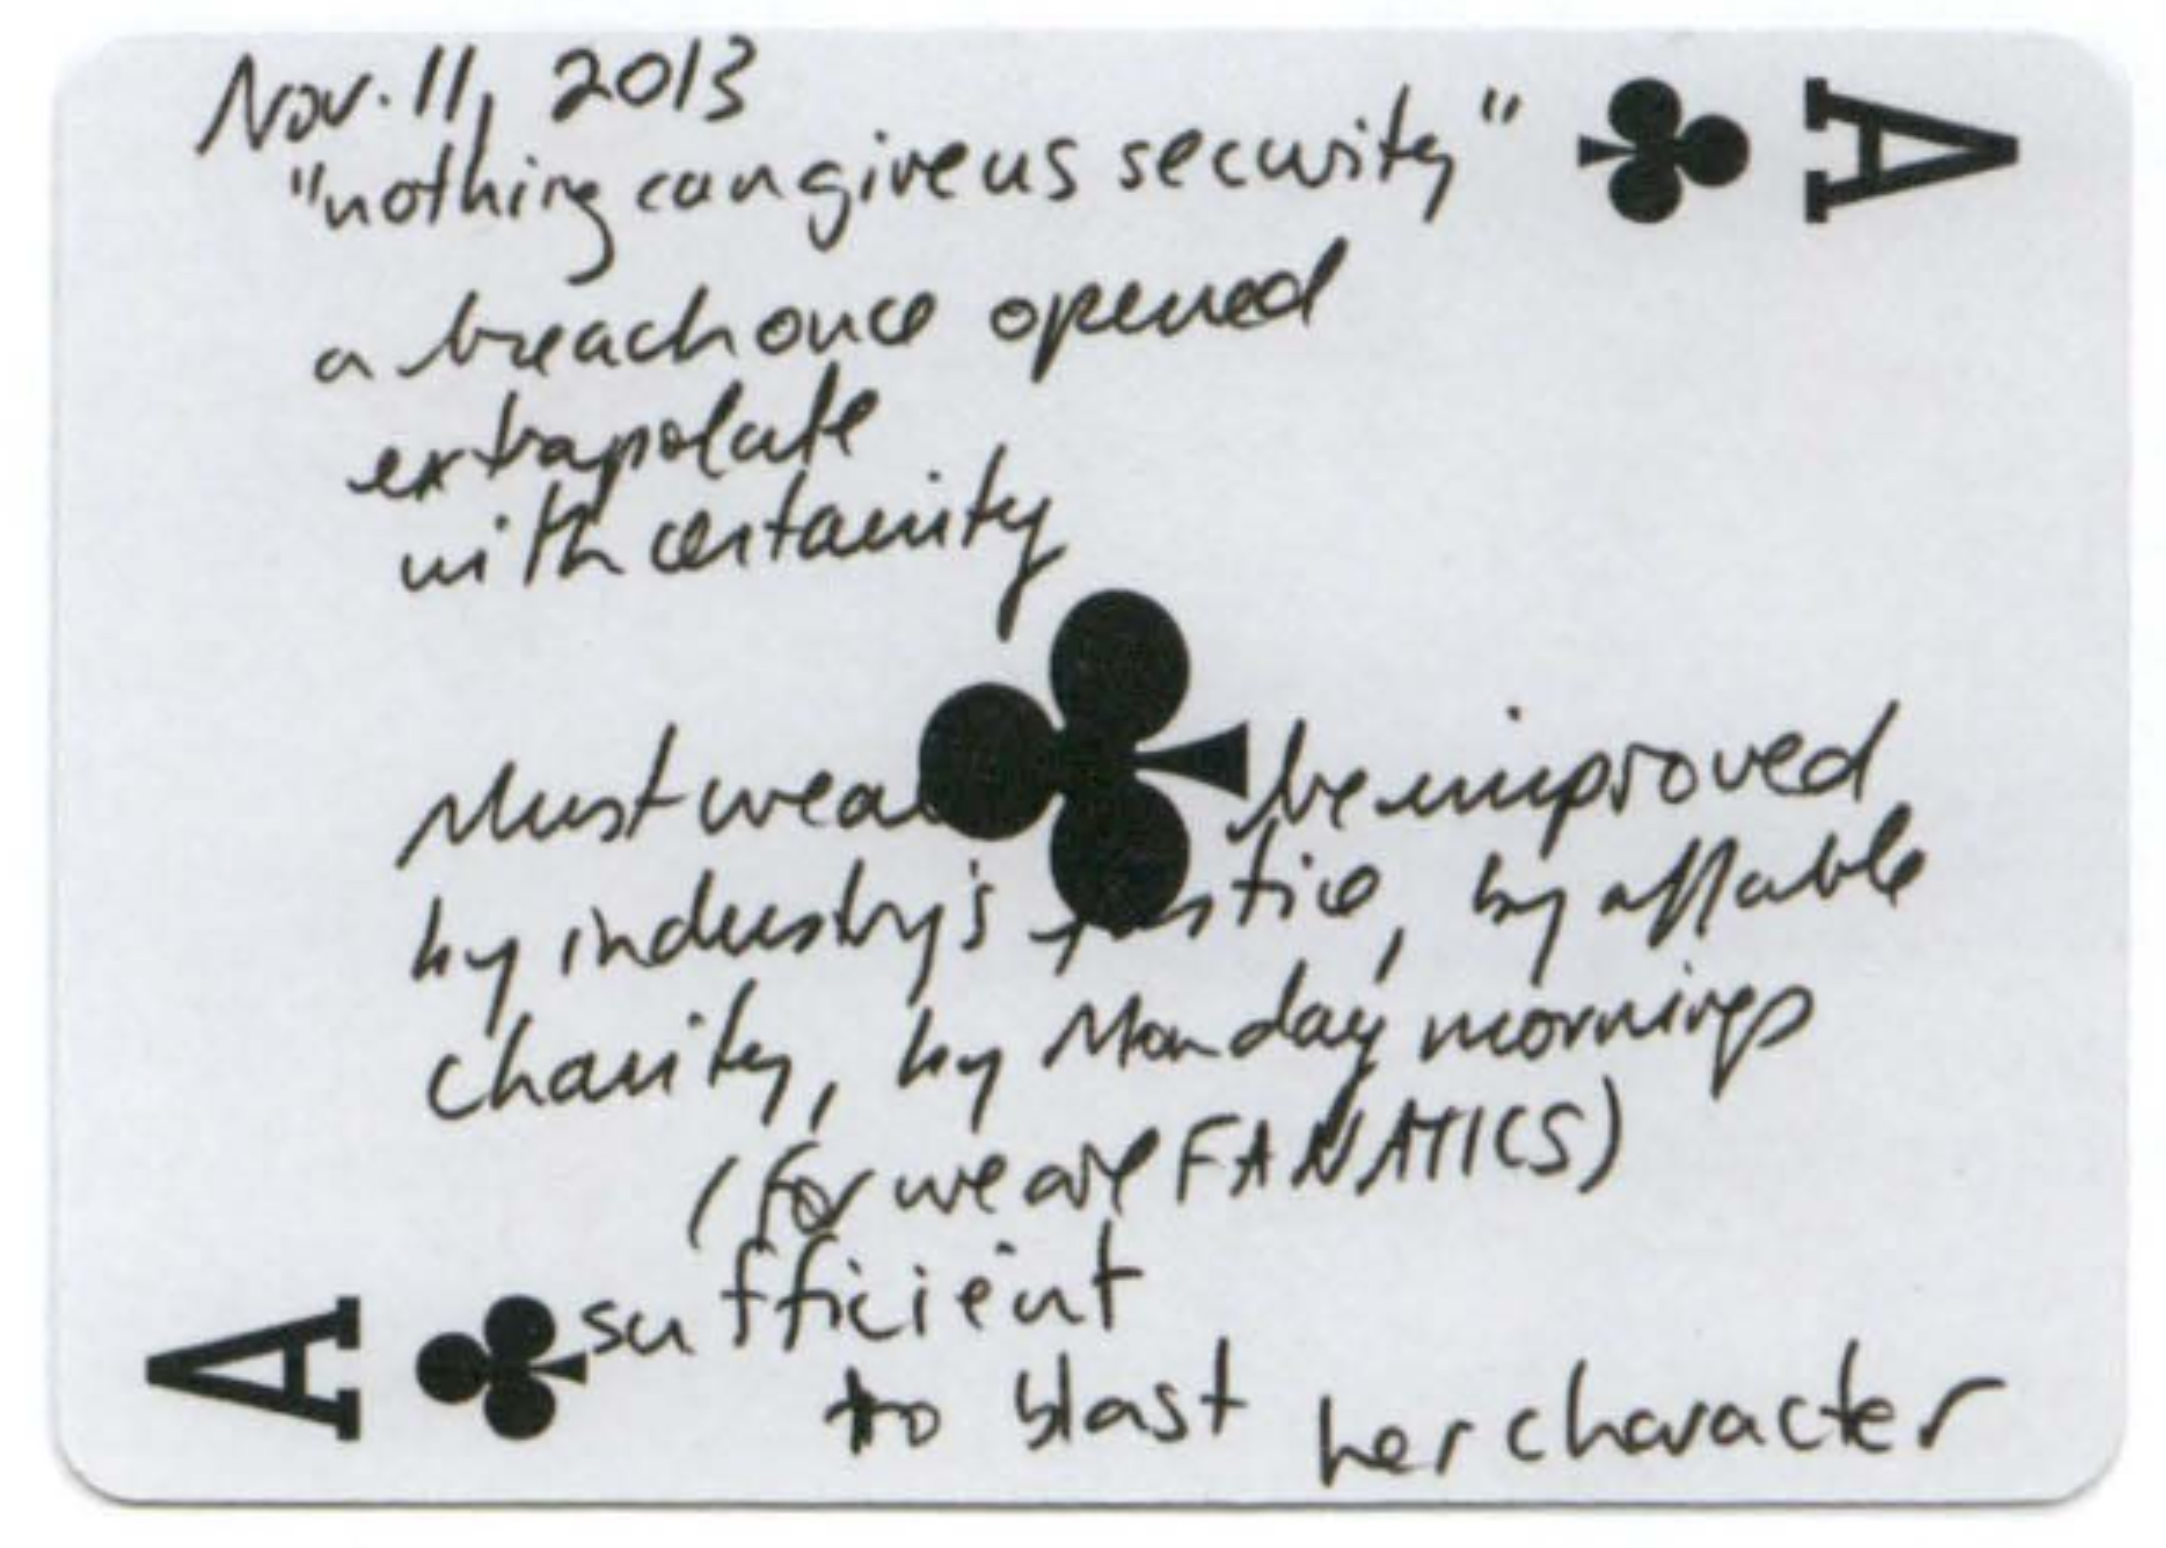 Nov. 11, 2013
"nothing can give us security"
A
a breach once opened
extrapolate
with certainity
Must we be improved
by industry's justice, by affable
charity, by Monday mornings
(for we are FANATICS)
sufficient
A
to blast her character